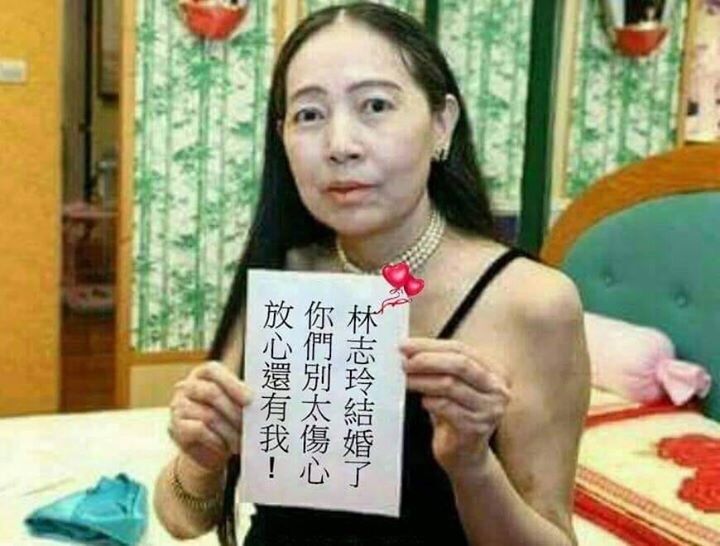 林志玲結婚了
你們別太傷心
放心還有我！